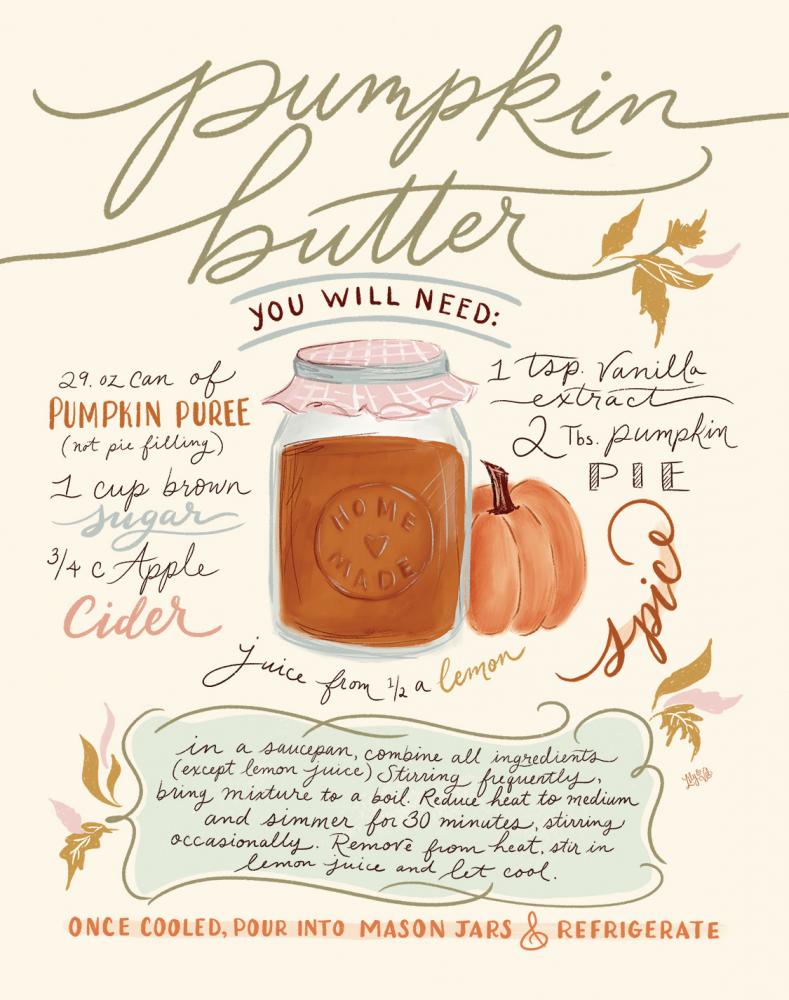 pumpkin
butter
YOU WILL NEED:
29. oz can of
PUMPKIN PUREE
(not pie filling)
1 cup brown
sugar
3/4 c Apple
Cider
1 tsp. Vanilla
extract
2 Tbs. pumpkin
PIE
spice
HOME
MADE
juice from 1/2 a lemon
in a saucepan, combine all ingredients
(except lemon juice) Stirring frequently,
bring mixture to a boil. Reduce heat to medium
and simmer for 30 minutes, stirring
occasionally. Remove from heat, stir in
lemon juice and let cool.
ONCE COOLED, POUR INTO MASON JARS & REFRIGERATE